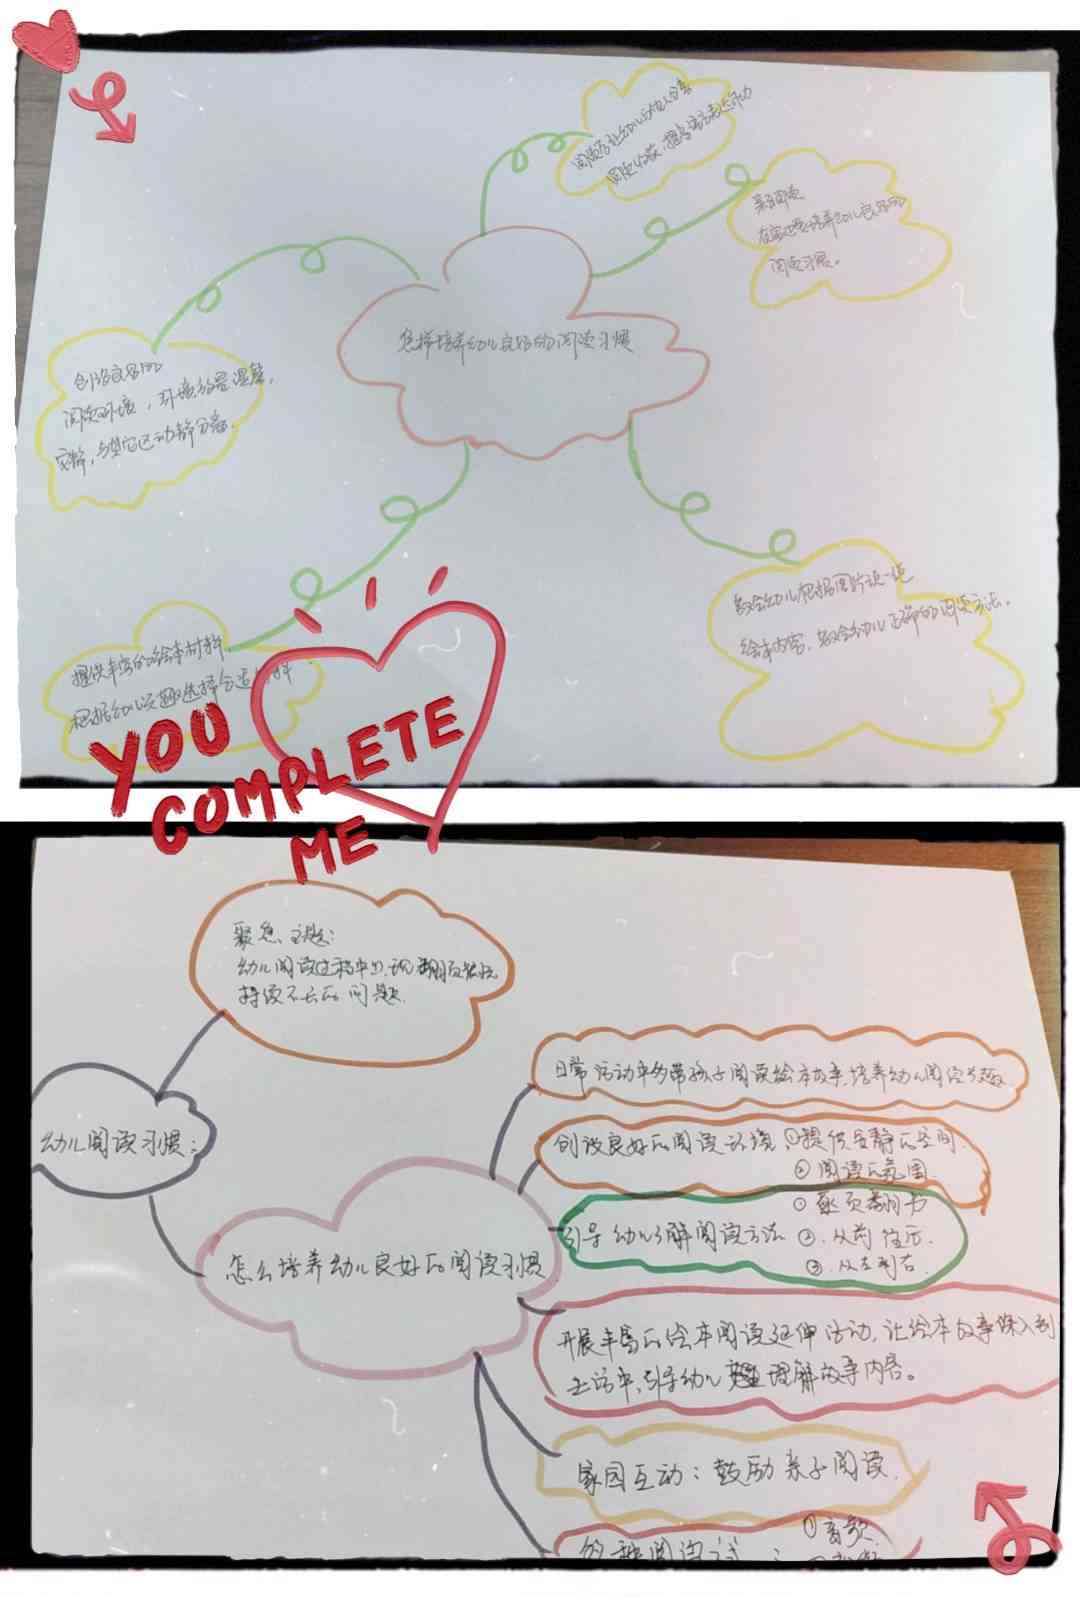 阅读后让幼儿与他人分享
阅读收获，提高语言表达能力
亲子阅读
在家也要培养幼儿良好的
阅读习惯。
怎样培养幼儿良好的阅读习惯
创设良好的
阅读环境，环境布置温馨，
安静，与其它区动静分离.
提供丰富的绘本材料.
根据幼儿兴趣选择合适材料
教会幼儿根据图片说一说
绘本内容，教会幼儿正确的阅读方法。
YOU
COMPLETE
ME
聚焦主题：
幼儿阅读过程中出现翻页
持续不长的问题.
幼儿阅读习惯：
怎么培养幼儿良好的阅读习惯
日常活动中多带孩子阅读绘本故事，培养幼儿阅读兴趣
创设良好的阅读环境，①提供安静的空间.
②阅读的氛围.
引导幼儿了解阅读方法 ①逐页翻书
②.从前往后.
③.从左到右.
开展丰富的绘本阅读延伸活动，让绘本故事深入到
生活中，引导幼儿理解故事内容。
家园互动：鼓励亲子阅读.
阅读
①